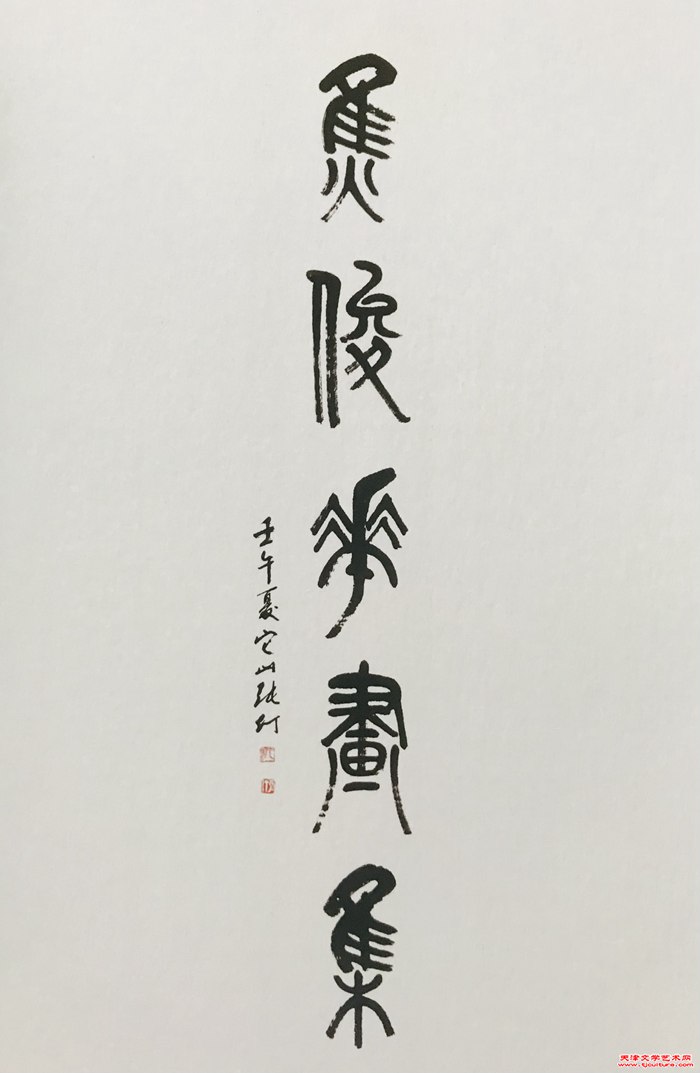 焦俊華畫集
壬午夏它山張仃
天津文学艺术网
www.tjculture.com